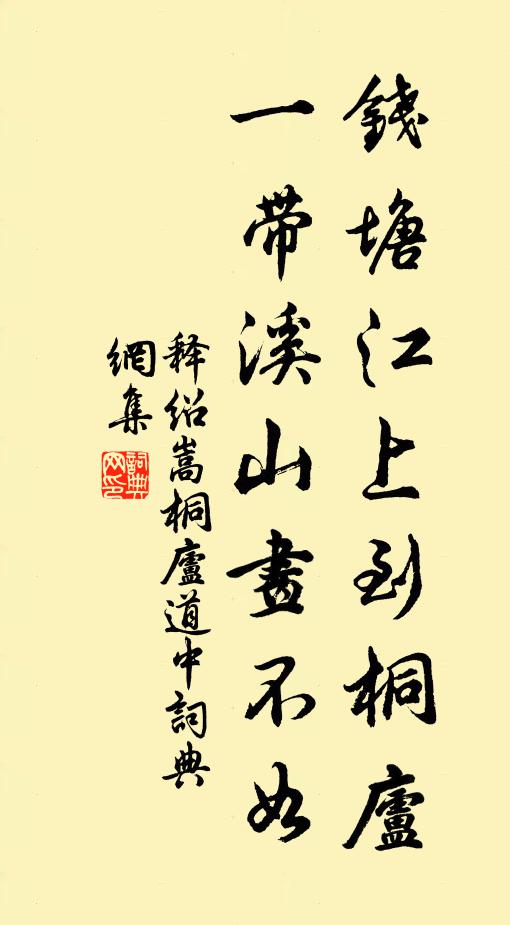 錢塘江上到桐廬
一带溪山畫不如
释绍嵩桐廬道中詞典
網集
詞典
网印